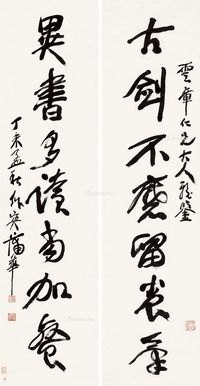 雲章仁兄大人雅鑒
古劍不磨留養氣
異書多讀當加餐
丁未孟秋作英蒲華